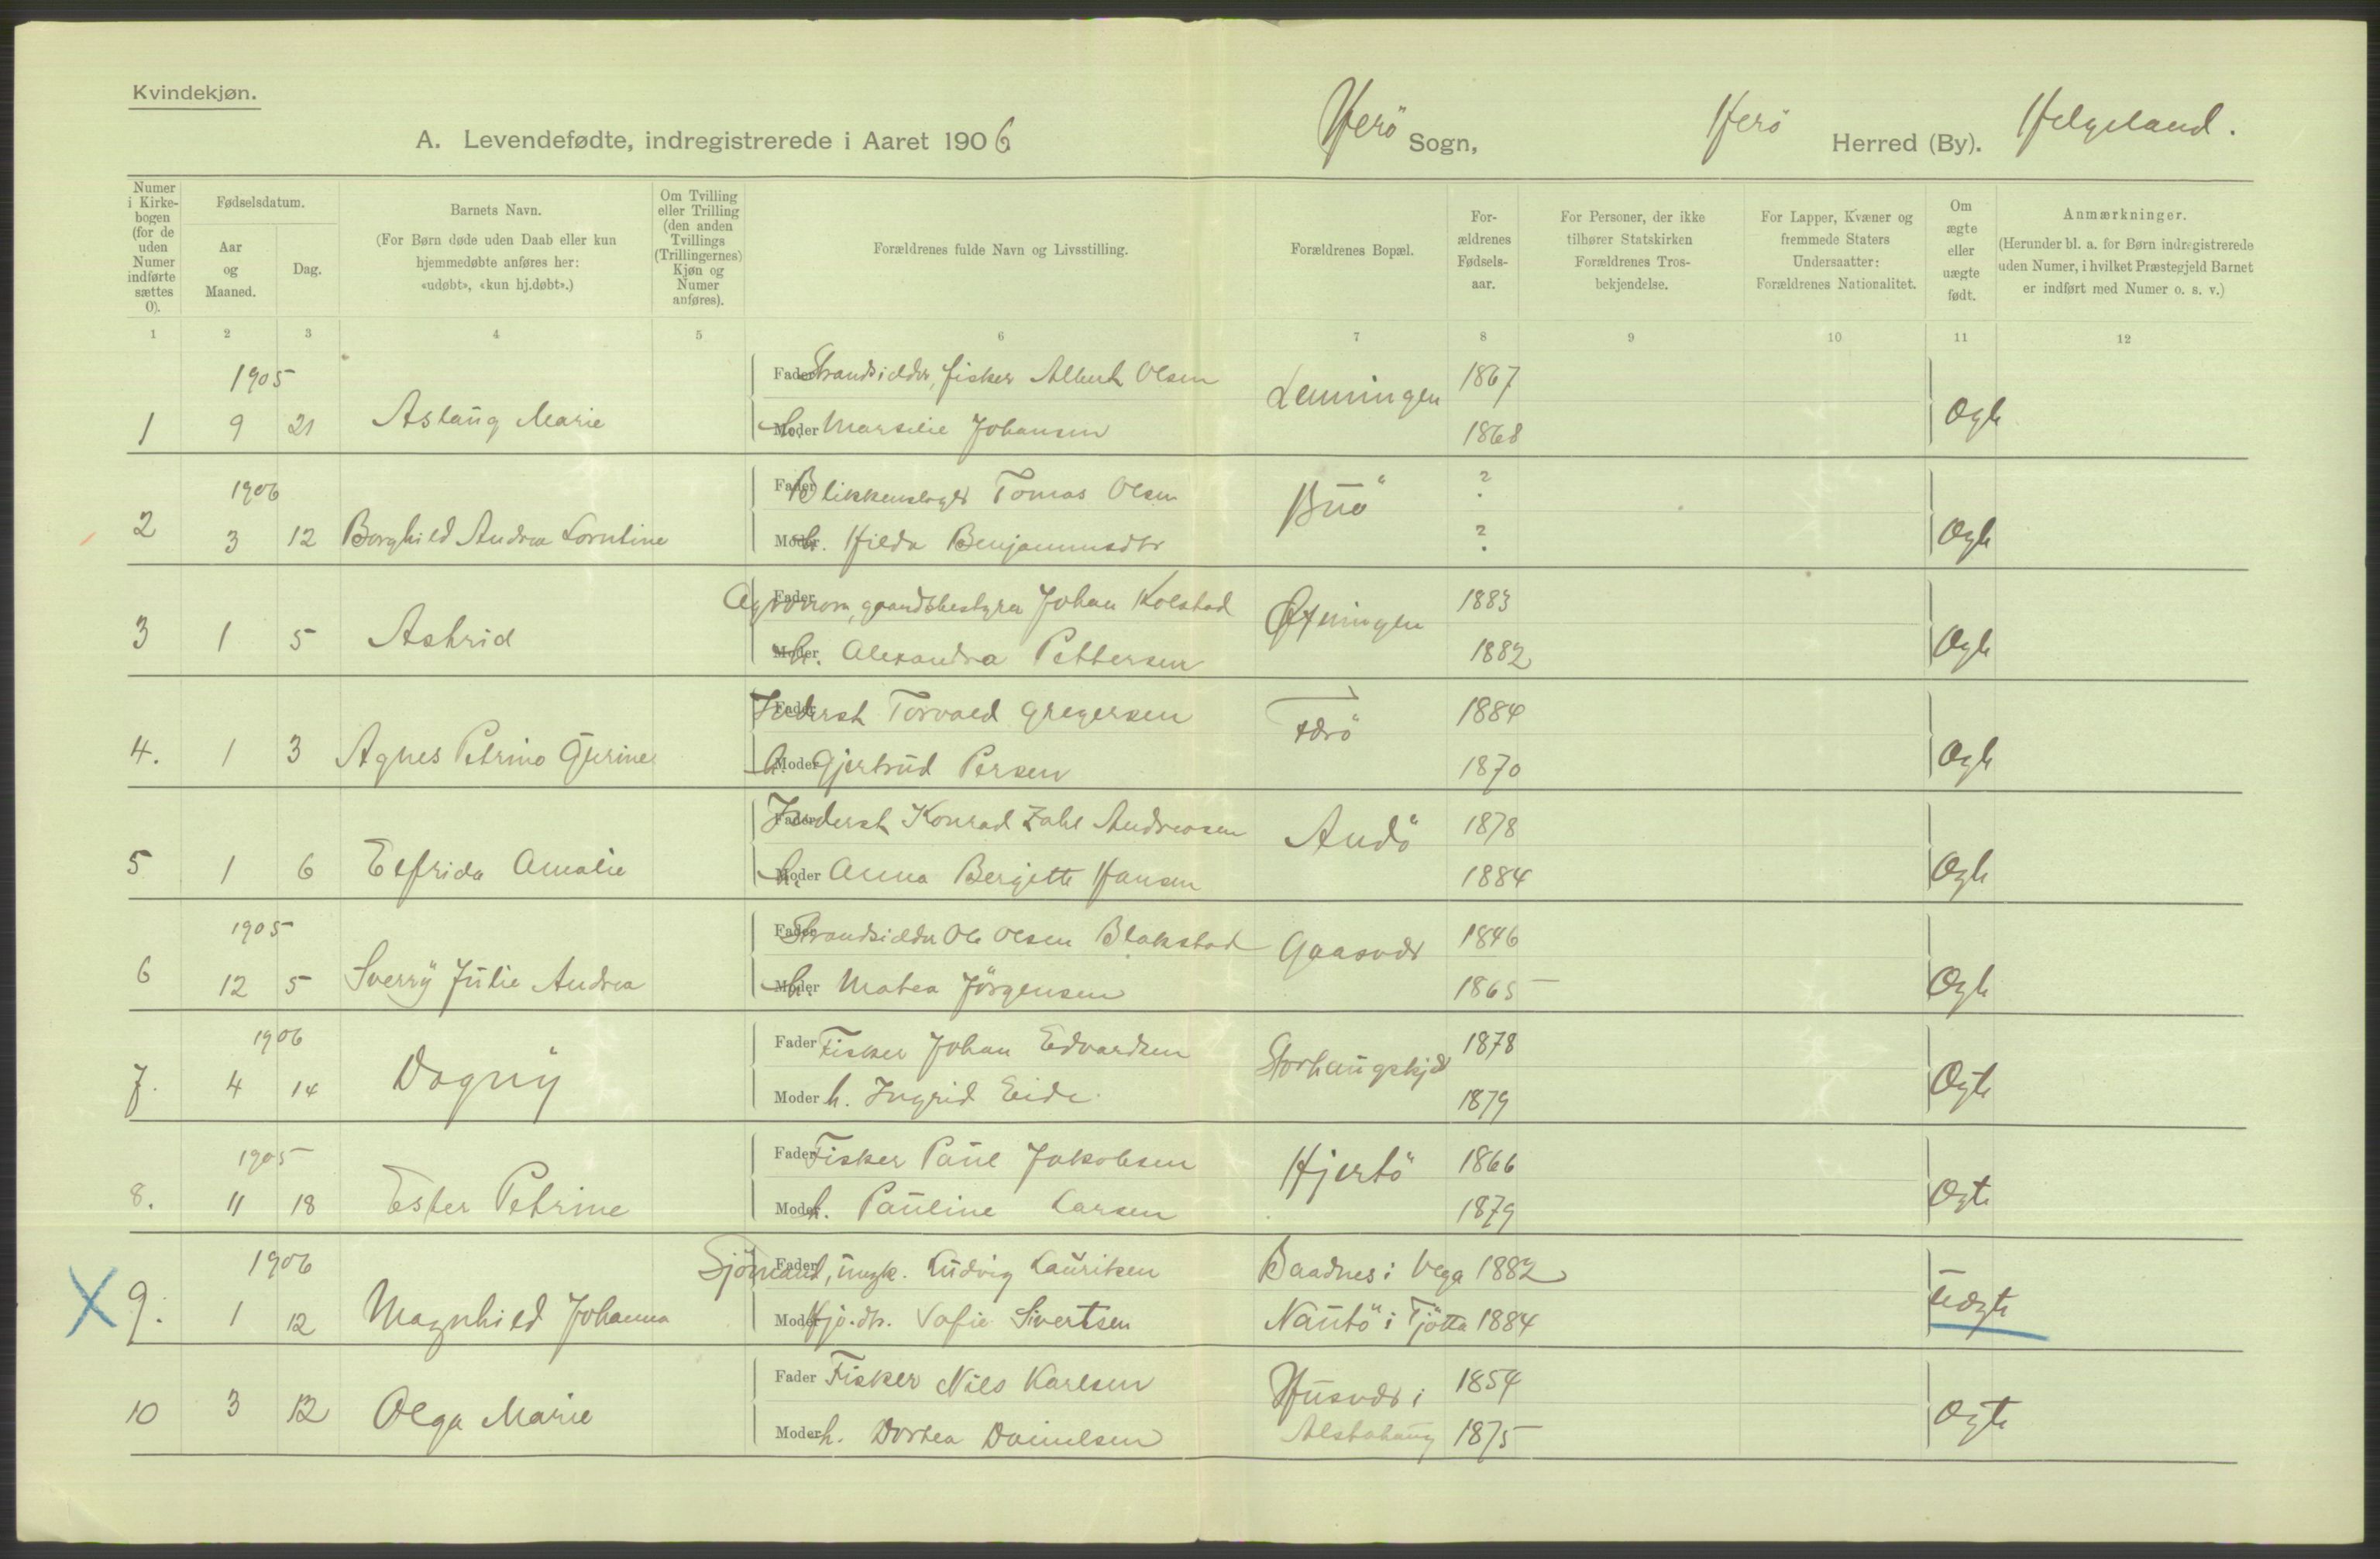 Kvindekjøn.
A. Levendefødte, indregistrerede i Aaret 1906 Herö Sogn, Herö Herred (By). Helgeland.
Numer i Kirke-bogen (for de uden Numer indførte sættes 0).
Fødselsdatum.
Aar og Maaned.
Dag.
Barnets Navn.
(For Børn døde uden Daab eller kun
hjemmedøbte anføres her:
«udøbt», «kun hj.døbt».)
Om Tvilling
eller Trilling
(den anden
Tvillings
(Trillingernes)
Kjøn og
Numer
anføres).
Forældrenes fulde Navn og Livsstilling.
Forældrenes Bopæl.
For-
ældrenes
Fødsels-
aar.
For Personer, der ikke
tilhører Statskirken
Forældrenes Tros-
bekjendelse.
For Lapper, Kvæner og
fremmede Staters
Undersaatter:
Forældrenes Nationalitet.
Om
ægte
eller
uægte
født.
Anmærkninger.
(Herunder bl. a. for Børn indregistrerede
uden Numer, i hvilket Præstegjeld Barnet
er indført med Numer o. s. v.)
1 2 3 4 5 6 7 8 9 10 11 12
1905 Fader Strandsidder, fisker Albert Olsen Lenningen 1867
1 9 21 Aslaug Marie Moder h. Marselie Johansen 1868 Ægte
1906 Fader Blikkenslager Tomas Olsen Buö ?
2 3 12 Borghild Andrea Lorntine Moder h. Hilda Benjaminsdtr ? Ægte
Fader Agronom, gaardsbestyrer Johan Kolstad Øxningen 1883
3 1 5 Astrid Moder h. Alexandra Pettersen 1882 Ægte
Fader Inderst Torvald Gregersen Færö 1884
4. 1 3 Agnes Petrine Gurine Moder h. Gjertrud Persen 1870 Ægte
Fader Inderst Konrad Zahl Andreasen Andö 1878
5 1 6 Elfrida Amalie Moder h. Anna Bergitte Hansen 1884 Ægte
1905 Fader Strandsidder Ole Olsen Blakstad Gaasvær 1846
6 12 5 Sverry Julie Andrea Moder h. Matea Jörgensen 1865 Ægte
1906 Fader Fisker Johan Edvardsen Storhaugskjær 1878
7. 4 14 Dagny Moder h. Ingrid Eide. 1879 Ægte
1905 Fader Fisker Paul Jakobsen Hjertö 1866
8. 11 18 Ester Petrine Moder h. Pauline Larsen 1879 Ægte
1906 Fader Sjömand, ungk. Ludvig Lauritsen Baadnes i Vega 1882
X 9. 1 12 Magnhild Johanna Moder Sofie Sivertsen Nautö i Tjötta 1884 Uægte
Fader Fisker Nils Karlsen Husvær i 1854
10 3 12 Olga Marie Moder h. Dortea Danielsen Alstahaug 1875 Ægte